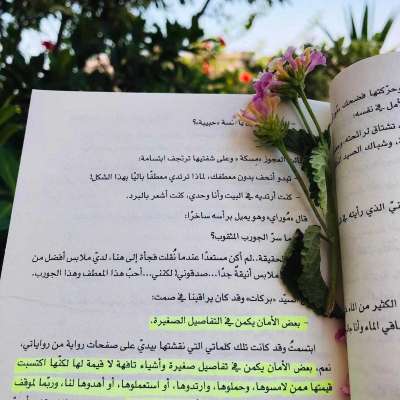 يا آنسة «حبيبة»؟
العجوز «مسكة» وعلى شفتيها ترتجف ابتسامة:
- تبدو أنحف بدون معطفك، لماذا ترتدي معطفًا باليًا بهذا الشكل!
- كنت أرتديه في البيت وأنا وحدي، كنت أشعر بالبرد.
قال «موراي» وهو يميل برأسه ساخرًا:
ما سرّ الجورب المثقوب؟
الحقيقة.. لم أكن مستعدًا عندما نُقلت فجأة إلى هنا، لديّ ملابس أفضل من
ملابس أنيقةً جدًا...صدقوني! لكنني...أحبّ هذا المعطف وهذا الجورب.
السيّد «بركات» وقد كان يراقبنا في صمت:
- بعض الأمان يكمن في التفاصيل الصغيرة.
ابتسمتُ وقد كانت تلك كلماتي التي نقشتها بيديّ على صفحات رواية من رواياتي.
نعم، بعض الأمان يكمن في تفاصيل صغيرة وأشياء تافهة لا قيمة لها لكنّها اكتسبت
قيمتها ممن لامسوها، وحملوها، وارتدوها، أو استعملوها، أو أهدوها لنا، وربّما لموقف
وحركتها فضحك
في نفسه.
تشتاق لرائحته
وشباك الصيد
الذي رأيته في
الكثير من